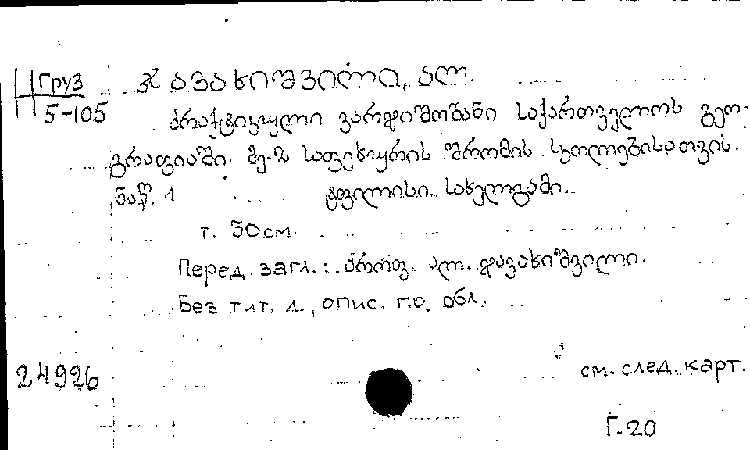 Груз
5-105
ჯავახიშვილი, ალ.
პრაქტიკული ვარჯიშობანი საქართველოს გეო-
გრაფიაში. მე-2 საფეხურის შრომის სკოლებისათვის.
ნაწ. 1 ტფილისი. სახელგამი.
т. 30см.
Перед загл.: პროფ. ალ. ჯავახიშვილი.
Без тит. л., опис. по обл.
24926 см. след. карт.
Г-20